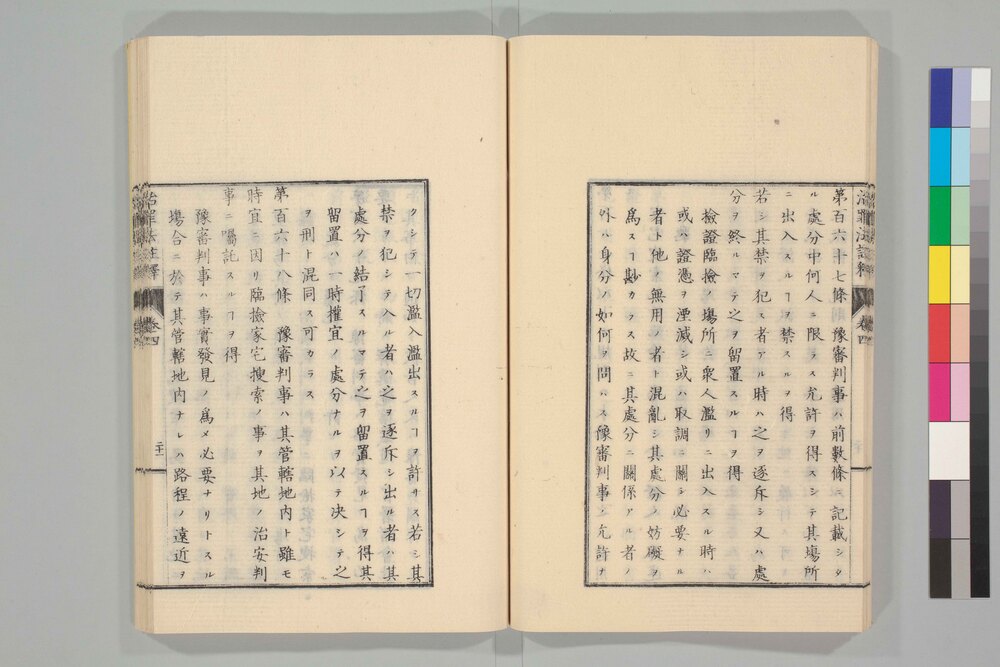 第百六十七條 豫審判事ハ前數條ニ記載シタ
ル處分中何人ニ限ラス允許ヲ得スシテ其場所
ニ出入スルヿヲ禁スルヲ得
若シ其禁ヲ犯ス者アル時ハ之ヲ逐斥シ又ハ處
分ヲ終ルマテ之ヲ留置スルヿヲ得
檢證臨檢ノ場所ニ衆人濫リニ出入スル時ハ
或ハ證憑ヲ湮滅シ或ハ取調ニ關シ必要ナル
者ト他ノ無用ノ者ト混亂シ其處分ノ妨礙ヲ
爲スヿ尠カラス故ニ其處分ニ關係アル者ノ
外ハ身分ノ如何ヲ問ハス豫審判事ノ允許ナ
治罪法註釋 卷四
クシテ一切濫入濫出スルヿヲ許サス若シ其
禁ヲ犯シテ入ル者ハ之ヲ逐斥シ出ル者ハ其
處分ノ結了スルマテ之ヲ留置スルヿヲ得其
留置ハ一時權宜ノ處分ナルヲ以テ決シテ之
ヲ刑ト混同ス可カラス
第百六十八條 豫審判事ハ其管轄地内ト雖モ
時宜ニ因リ臨檢家宅搜索ノ事ヲ其地ノ治安判
事ニ囑託スルヿヲ得
豫審判事ハ事實發見ノ爲メ必要ナリトスル
塲合ニ於テ其管轄地内ナレハ路程ノ遠近ヲ
治罪法註釋 卷四